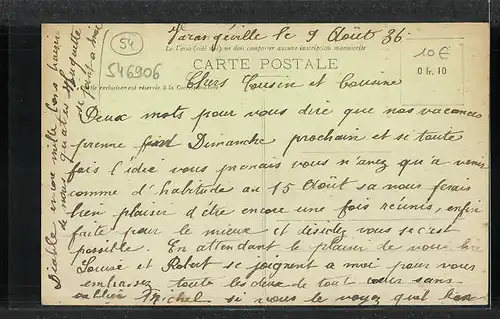 Varangéville le 9 Août 36.
54
Le Verso (côté vue) ne doit comporter aucune inscription manuscrite
10€
546906
CARTE POSTALE
0 fr. 10
exclusivement réservée à la
Chers Cousin et Cousine
Deux mots pour vous dire que nos vacances
prenne Dimanche prochain et si toute
fois l'idée vous prenais vous n'avez qu'a venir
comme d'habitude au 15 Août sa nous ferais
bien plaisir d'être encore une fois réunis, enfin
faite pour le mieux et décidez vous si c'est
possible. En attendant le plaisir de vous lire
Louise et Robert se joignent a moi pour vous
embrasser toute les deux de tout cœur sans
oublier Michel si vous le voyez quel
encore mille bons baisers
de nous quatre Huguette